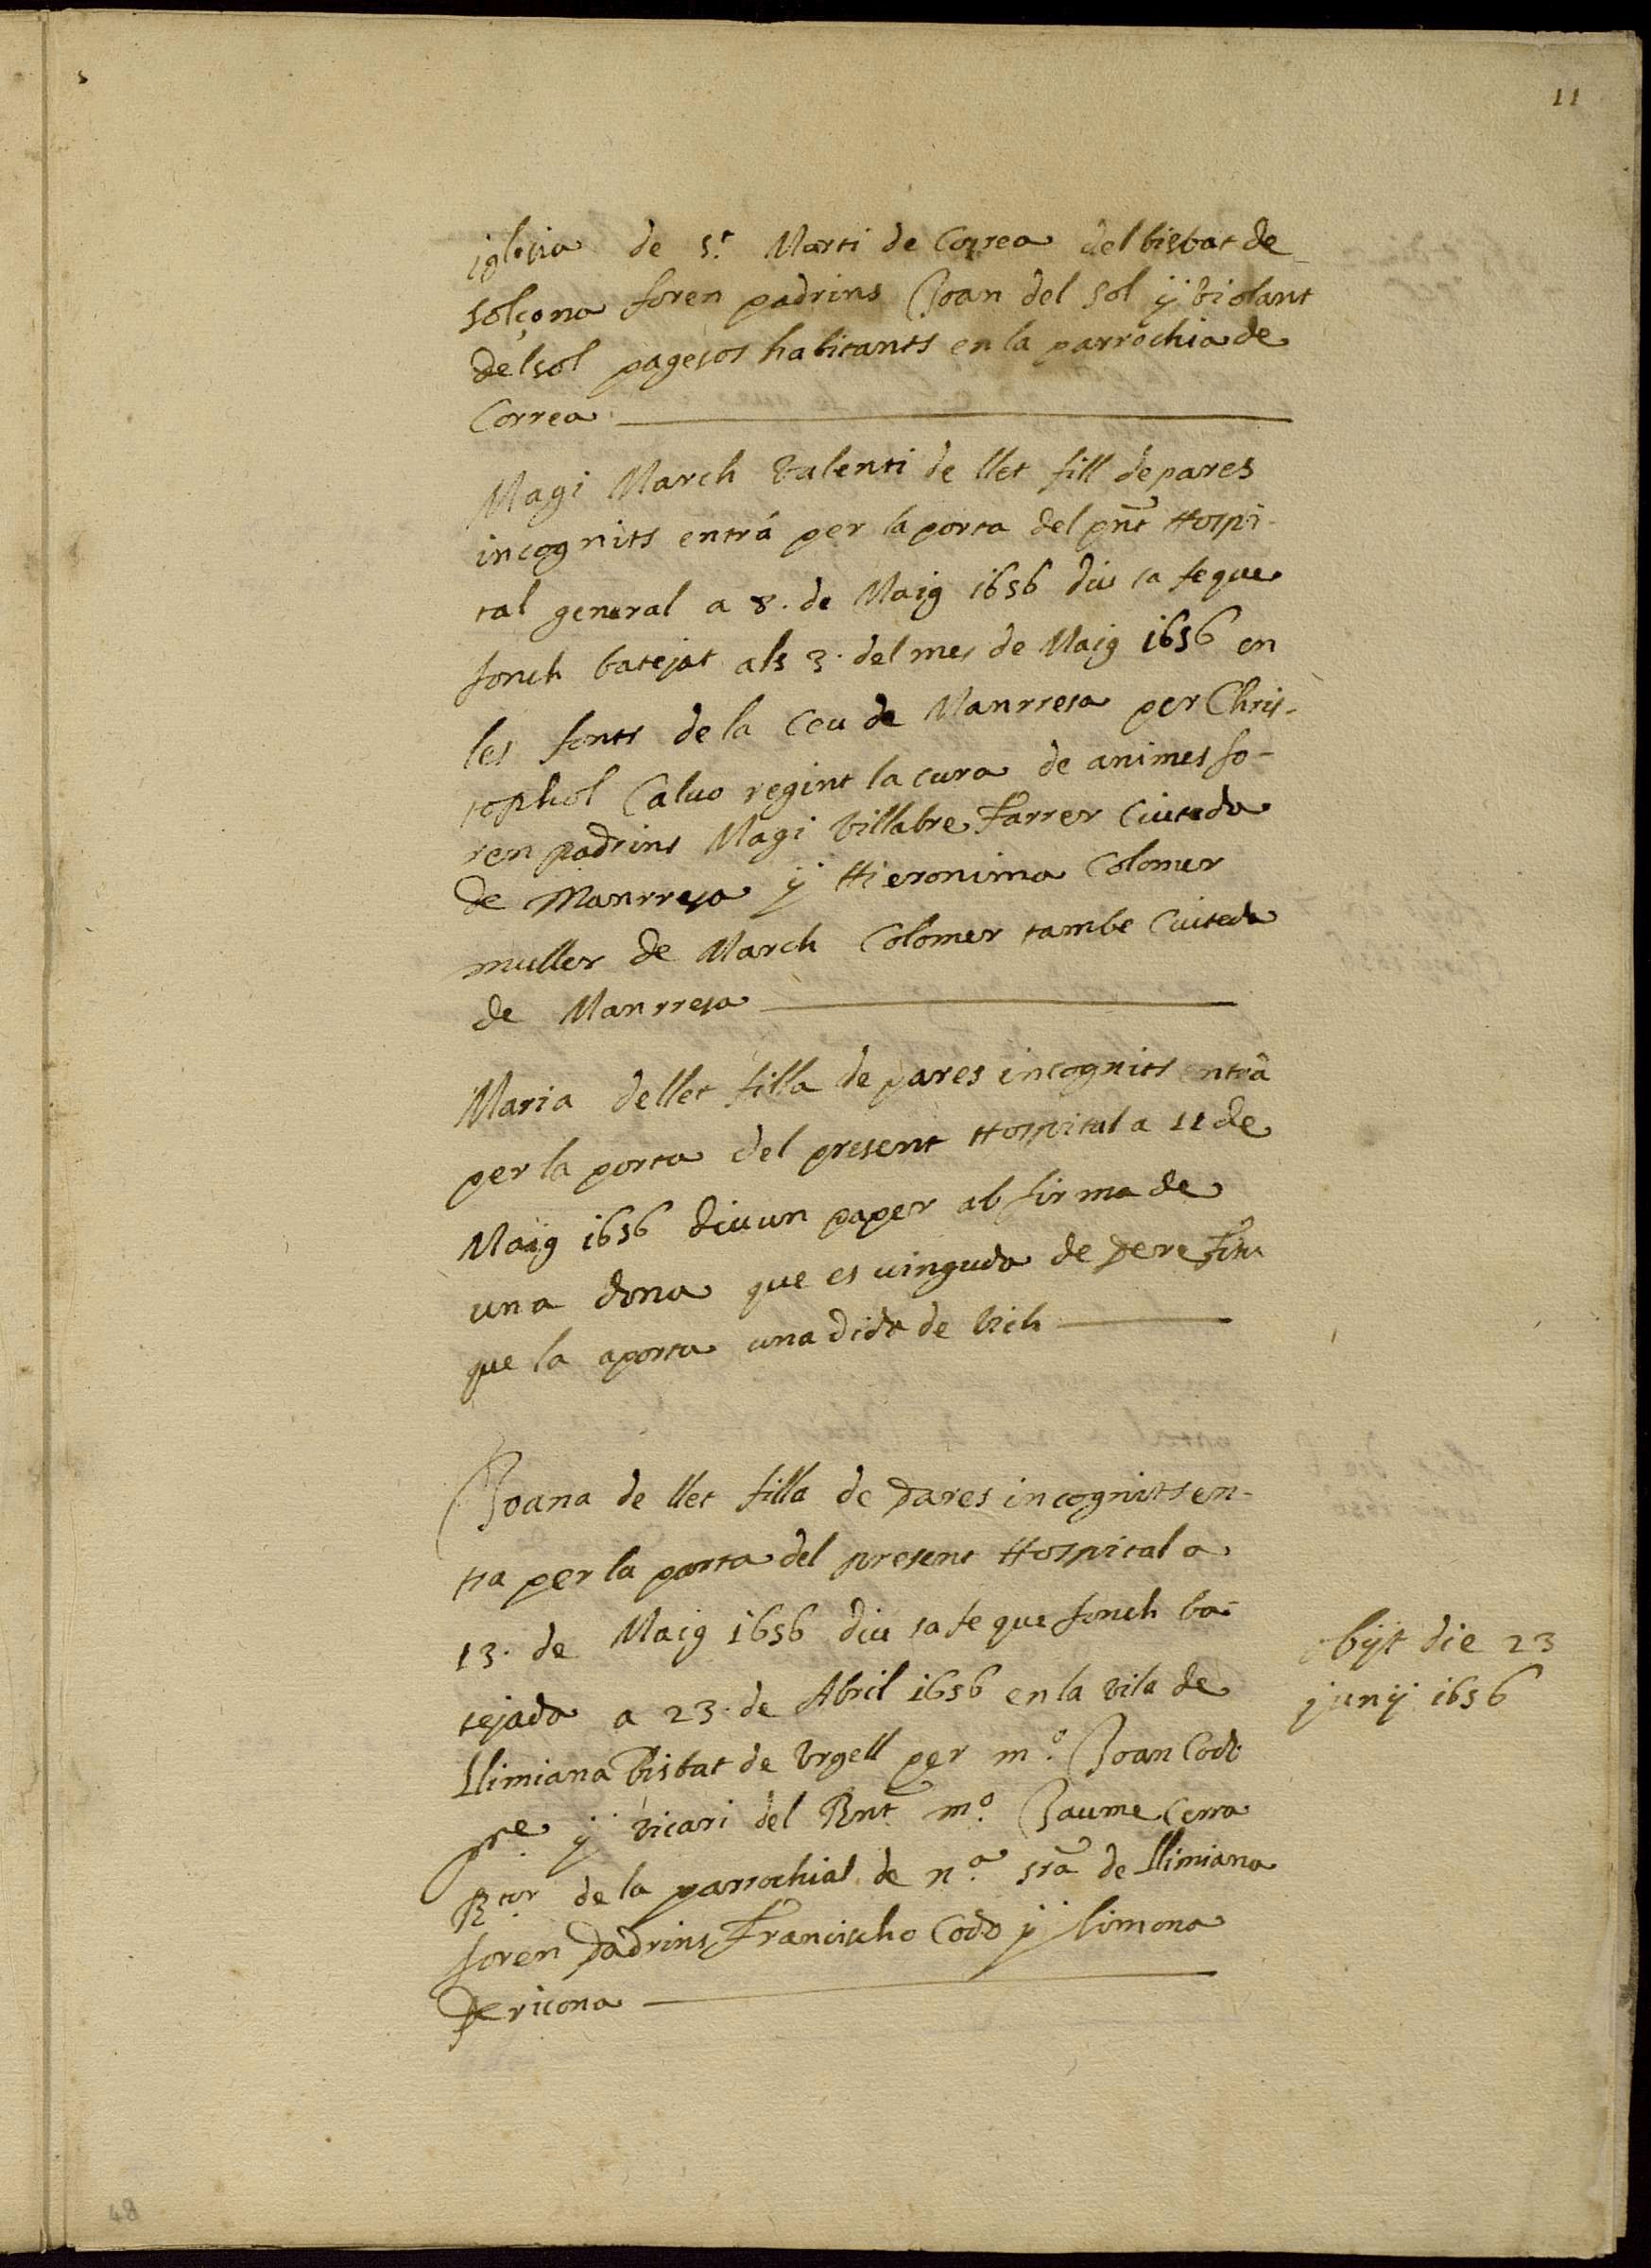 11
iglesia de s.t Marti de Correa del bisbat de
solçona foren padrins Joan del sol ÿ violant
del sol pagesos habitants en la parrochia de
Correa
Magi March Valenti de llet fill de pares
incognits entrá per la porta del pñt Hospi-
tal general a 8. de Maig 1656 diu sa fe que
fonch batejat als 3. del mes de Maig 1656 en
les fonts de la Ceu de Manrresa per Chris-
tophol Calvo regint la cura de animes fo-
ren padrins Magi Villabre Farrer Ciuteda
de Manrresa ÿ Hieronima Colomer
muller de March Colomer tambe Ciuteda
de Manrresa
Maria de llet filla de pares incognits entrâ
per la porta del present Hospital a 11 de
Maig 1656 diu un paper ab firma de
una dona que es vinguda de Pere fita
que la aporta una dida de Vich
Joana de llet filla de Pares incognits en-
tra per la porta del present Hospital a
13. de Maig 1656 diu sa fe que fonch ba-
tejada a 23. de Abril 1656 en la vila de
Llimiana Bisbat de Vrgell per m.o Joan Codo
pre ÿ vicari del Rnt m.o Jaume Cerra
Rtor de la parrochial de n.a sra de Llimiana
foren Padrins Francischo Codo ÿ Simona
Pericona
obÿt die 23
junÿ 1656
48